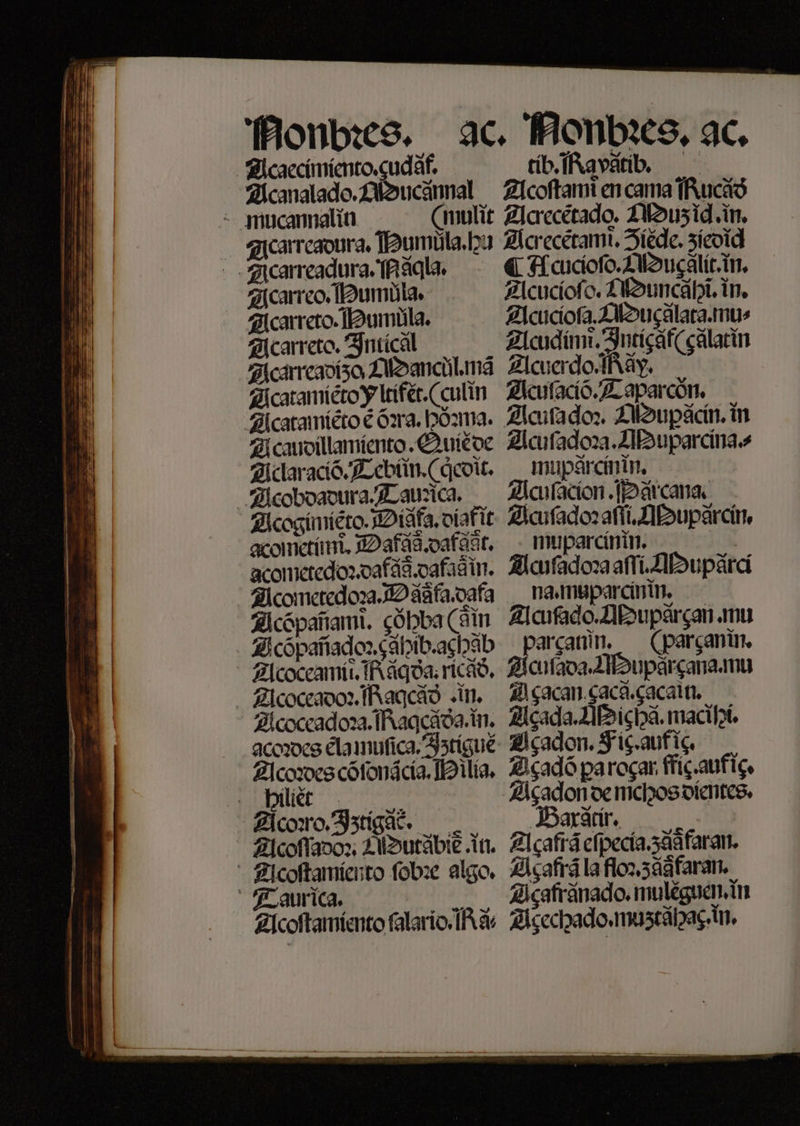 Nonbres. ac.
Acaecimiento. çudáf.
Acanalado. Mucánnal
mucannalin (mulit
Acarreadura. Humúla. hu
Acarreadura. Ráqla.
Acarreo. Humúla.
Acarreto. Humúla.
Acarreto. Inticál
Acarreadizo. Mancúl. má
Acatamiẽto y ltifét. (culin
Acatamiẽto ẽ õrra. hórma.
Acaudillamiento. Quiẽde
Aclaració. Tebtin. (ḋcoit.
Acobdadura. Tauzica.
Acogimiẽto. Diáfa. diafit
acometimi. Dafáá. dafáát.
acometedor. dafáá. dafaáin.
Acometedora. Dááfa. dafa
Acõpañami. çóhba (áin
Acõpañador. çáhib. açháb
Acoceami. Ráqda. ricáð.
Acoceador. Raqcáð .in.
Acoceadora. Raqcáða. in.
acordes ẽ la musica. Iztigué
Acordes cõsonãcia. Hilia.
hiliét
Acorro. Iztigáẽ.
Acossador. Mutábiẽ .in.
Acostamiento sobre algo.
Taurica.
Acostamiento salario. Rá-
Nonbres, ac.
tib. Ravátib.
Acostami en cama Rucáð
Acrecẽtado. Muzid .in.
Acrecẽtami. Ziẽde. zieoid
¶ A cucioso. Muçálit. in.
Acucioso. Muncáhi. in.
Acuciosa. Muçálata. mu-
Acudimi. Intiçáf (çálatin
Acuerdo. Ráy.
Acusació. Taparcón.
Acusador. Mupácin. in
Acusadora. Muparcina.-
mupárcinin.
Acusacion. Párcana.
Acusador assi. Mupárcin.
muparcinin.
Acusadora assi. Mupárci
na. muparcinin.
Acusado. Mupárçan .mu
parçanin. (parçanin.
Acusada. Mupárçana. mu
Açacan. çacá. çacain.
Açada. Miçhá. macihi.
Açadon. Fiç. aufiç.
Açadõ para roçar. ffiç. aufiç.
Açadon de michos dientes.
Barátir.
Açafrá especia. záâfaran.
Açafrá la flor. záâfaran.
Açafránado. muléguen. in
Acechado. muztáhaç. in.